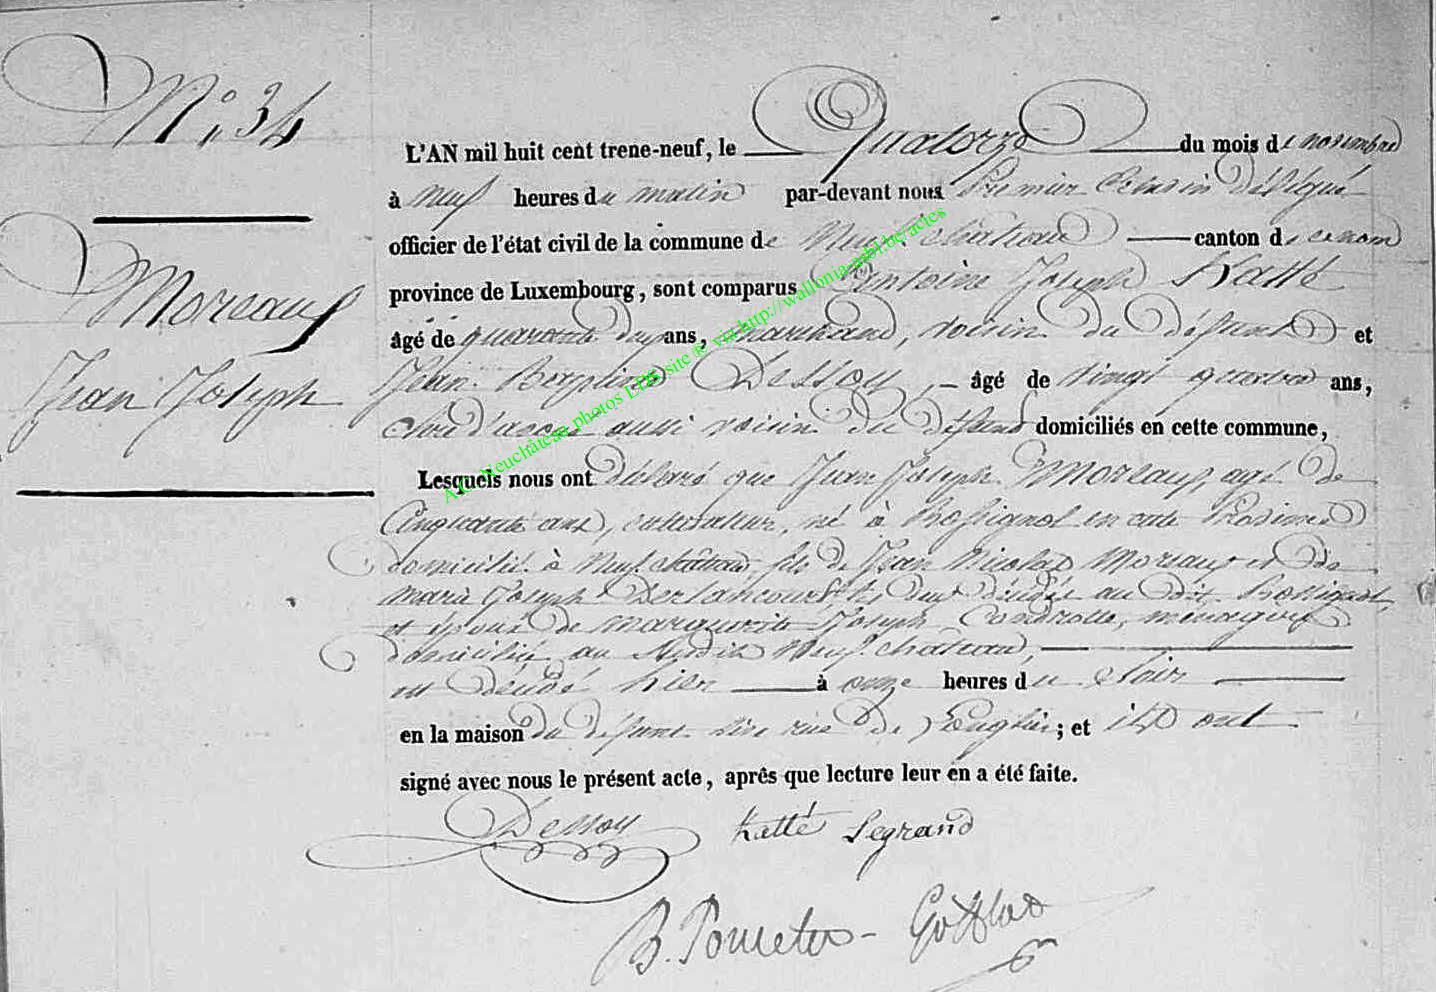 N.° 34
Moreaux
Jean Joseph
L'AN mil huit cent trene-neuf, le Quatorze du mois de novembre
à neuf heures du matin par-devant nous Premier Echevin délégué
officier de l'état civil de la commune de Neufchâteau canton de ce nom
province de Luxembourg, sont comparus Antoine Joseph Hatté
âgé de quarante deux ans, marchand, voisin du défunt et
Jean Dessoy, âgé de vingt quatre ans,
aussi voisin du défunt domiciliés en cette commune,
Lesquels nous ont déclaré que Jean Joseph Moreaux, agé de
Cinquante ans, né à Rossignol en cette Province
domicilié à Neufchâteau, fils de Jean Nicolas Moreaux et de
Marie Joseph au dit Rossignol,
et époux de Marguerite Joseph ménagère
domiciliée au susdit Neufchâteau,
est décédé hier à onze heures du soir
en la maison du défunt sise rue de Longlier; et ils ont
signé avec nous le présent acte, après que lecture leur en a été faite.
Dessoy hatté Legrand
B. Pometer
A.C. Neuchâteau photos LDS site @ via http://wallonia-asbl.be/actes